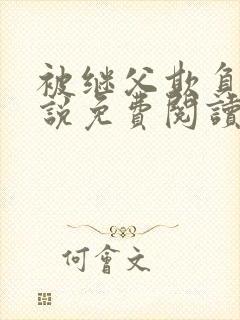 被继父欺负
説免費閱讀
何會文